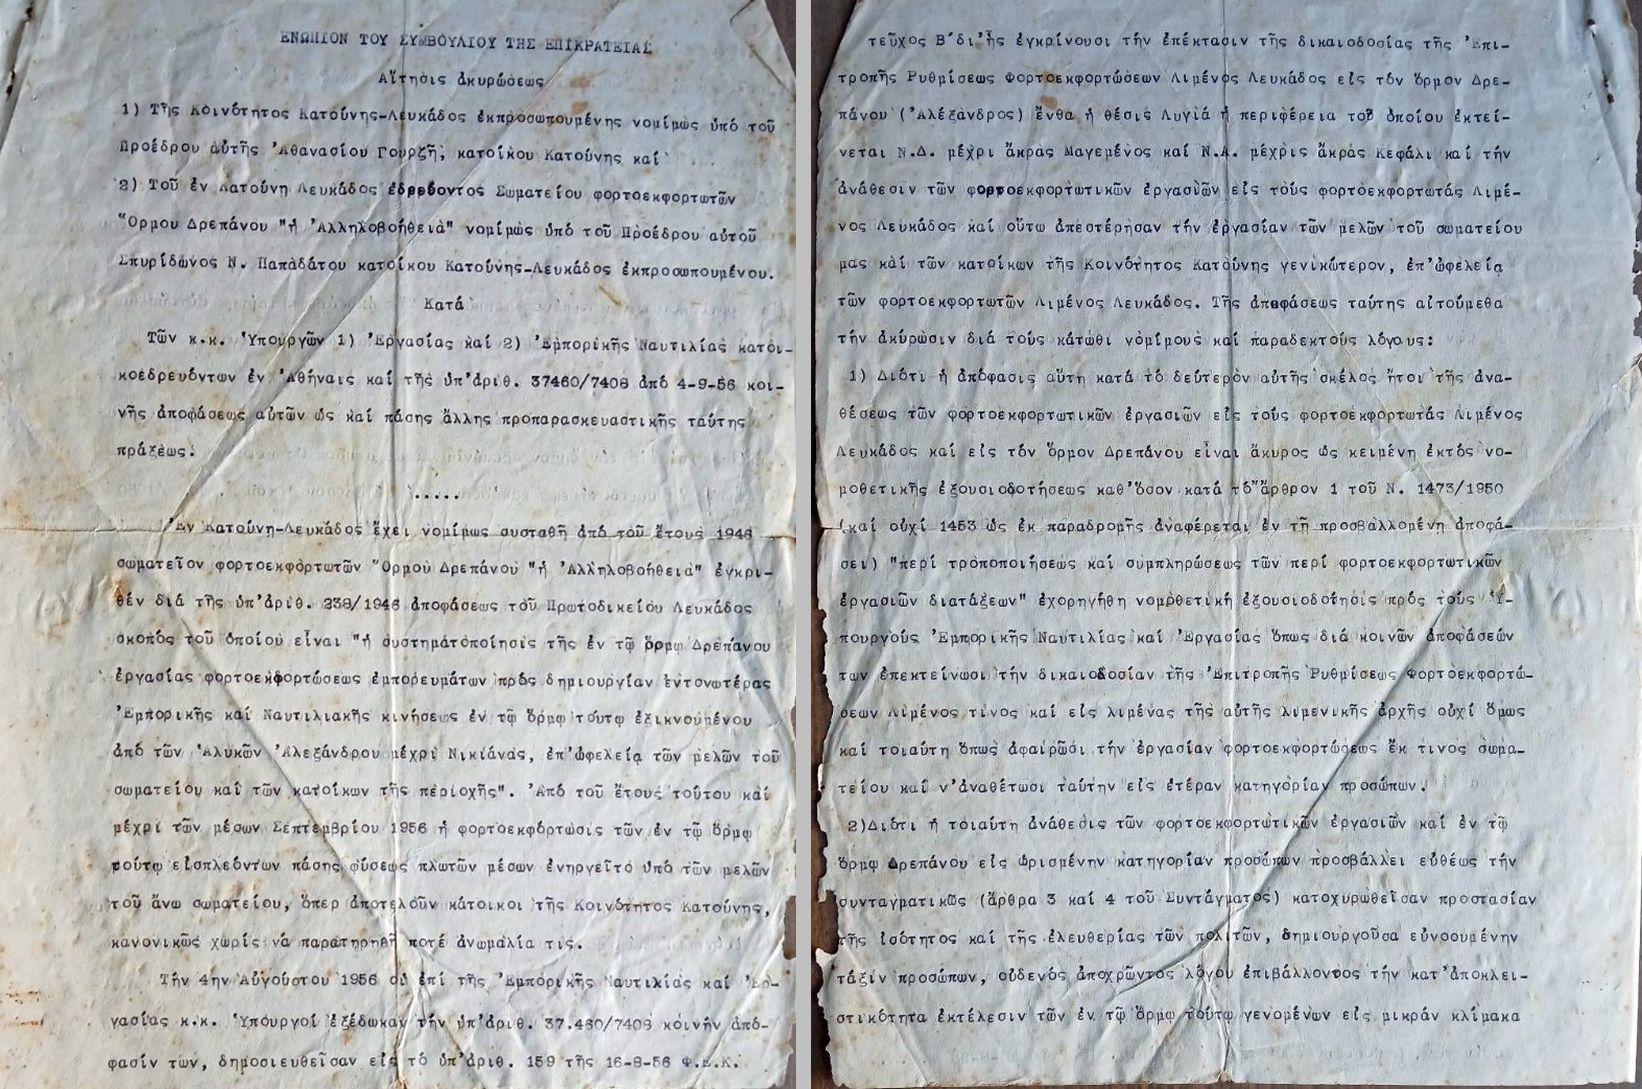 ΕΝΩΠΙΟΝ ΤΟΥ ΣΥΜΒΟΥΛΙΟΥ ΤΗΣ ΕΠΙΚΡΑΤΕΙΑΣ
Αἴτησις ἀκυρώσεως
1) Τῆς Κοινότητος Κατούνης-Λευκάδος ἐκπροσωπουμένης νομίμως ὑπό τοῦ
Προέδρου αὐτῆς Ἀθανασίου Γουρζῆ, κατοίκου Κατούνης καί
2) Τοῦ ἐν Κατούνῃ Λευκάδος ἑδρεύοντος Σωματείου φορτοεκφορτωτῶν
Ὅρμου Δρεπάνου "ἡ Ἀλληλοβοήθεια" νομίμως ὑπό τοῦ Προέδρου αὐτοῦ
Σπυρίδωνος Ν. Παπαδάτου κατοίκου Κατούνης-Λευκάδος ἐκπροσωπουμένου.
Κατά
Τῶν κ.κ. Ὑπουργῶν 1) Ἐργασίας καί 2) Ἐμπορικῆς Ναυτιλίας κατοι-
κοεδρευόντων ἐν Ἀθήναις καί τῆς ὑπ'ἀριθ. 37460/7408 ἀπό 4-9-56 κοι-
νῆς ἀποφάσεως αὐτῶν ὡς καί πάσης ἄλλης προπαρασκευαστικῆς ταύτης
πράξεως.
.....
Ἐν Κατούνῃ-Λευκάδος ἔχει νομίμως συσταθῆ ἀπό τοῦ ἔτους 1946
σωματεῖον φορτοεκφορτωτῶν Ὅρμου Δρεπάνου "ἡ Ἀλληλοβοήθεια" ἐγκρι-
θέν διά τῆς ὑπ'ἀριθ. 238/1946 ἀποφάσεως τοῦ Πρωτοδικείου Λευκάδος
σκοπός τοῦ ὁποίου εἶναι "ἡ συστηματοποίησις τῆς ἐν τῷ ὅρμῳ Δρεπάνου
ἐργασίας φορτοεκφορτώσεως ἐμπορευμάτων πρός δημιουργίαν ἐντονωτέρας
Ἐμπορικῆς καί Ναυτιλιακῆς κινήσεως ἐν τῷ ὅρμῳ τούτῳ ἐξικνουμένου
ἀπό τῶν Ἁλυκῶν Ἀλεξάνδρου μέχρι Νικιάνας, ἐπ'ὠφελείᾳ τῶν μελῶν τοῦ
σωματείου καί τῶν κατοίκων τῆς περιοχῆς". Ἀπό τοῦ ἔτους τούτου καί
μέχρι τῶν μέσων Σεπτεμβρίου 1956 ἡ φορτοεκφόρτωσις τῶν ἐν τῷ ὅρμῳ
τούτῳ εἰσπλεόντων πάσης φύσεως πλωτῶν μέσων ἐνηργεῖτο ὑπό τῶν μελῶν
τοῦ ἄνω σωματείου, ὅπερ ἀποτελοῦν κάτοικοι τῆς Κοινότητος Κατούνης,
κανονικῶς χωρίς νά παρατηρηθῆ ποτέ ἀνωμαλία τις.
Τήν 4ην Αὐγούστου 1956 οἱ ἐπί τῆς Ἐμπορικῆς Ναυτιλίας καί Ἐρ-
γασίας κ.κ. Ὑπουργοί ἐξέδωκαν τήν ὑπ'ἀριθ. 37.460/7408 κοινήν ἀπό-
φασίν των, δημοσιευθεῖσαν εἰς τό ὑπ'ἀριθ. 159 τῆς 16-8-56 Φ.Ε.Κ.
τεῦχος Β'δι'ἧς ἐγκρίνουσι τήν ἐπέκτασιν τῆς δικαιοδοσίας τῆς Ἐπι-
τροπῆς Ρυθμίσεως Φορτοεκφορτώσεων Λιμένος Λευκάδος εἰς τόν ὅρμον Δρε-
πάνου (Ἀλέξανδρος) ἔνθα ἡ θέσις Λυγιά ἡ περιφέρεια τοῦ ὁποίου ἐκτεί-
νεται Ν.Δ. μέχρι ἄκρας Μαγεμένος καί Ν.Α. μέχρις ἄκρας Κεφάλι καί τήν
ἀνάθεσιν τῶν φορτοεκφορτωτικῶν ἐργασιῶν εἰς τούς φορτοεκφορτωτάς Λιμέ-
νος Λευκάδος καί οὕτω ἀπεστέρησαν τήν ἐργασίαν τῶν μελῶν τοῦ σωματείου
μας καί τῶν κατοίκων τῆς Κοινότητος Κατούνης γενικώτερον, ἐπ'ὠφελείᾳ
τῶν φορτοεκφορτωτῶν Λιμένος Λευκάδος. Τῆς ἀποφάσεως ταύτης αἰτούμεθα
τήν ἀκύρωσιν διά τούς κάτωθι νομίμους καί παραδεκτούς λόγους:
1) Διότι ἡ ἀπόφασις αὕτη κατά τό δεύτερον αὐτῆς σκέλος ἤτοι τῆς ἀνα-
θέσεως τῶν φορτοεκφορτωτικῶν ἐργασιῶν εἰς τούς φορτοεκφορτωτάς Λιμένος
Λευκάδος καί εἰς τόν ὅρμον Δρεπάνου εἶναι ἄκυρος ὡς κειμένη ἐκτός νο-
μοθετικῆς ἐξουσιοδοτήσεως καθ'ὅσον κατά τό ἄρθρον 1 τοῦ Ν. 1473/1950
(καί οὐχί 1453 ὡς ἐκ παραδρομῆς ἀναφέρεται ἐν τῇ προσβαλλομένῃ ἀποφά-
σει) "περί τροποποιήσεως καί συμπληρώσεως τῶν περί φορτοεκφορτωτικῶν
ἐργασιῶν διατάξεων" ἐχορηγήθη νομοθετική ἐξουσιοδότησις πρός τούς Ὑ-
πουργούς Ἐμπορικῆς Ναυτιλίας καί Ἐργασίας ὅπως διά κοινῶν ἀποφάσεών
των ἐπεκτείνωσι τήν δικαιοδοσίαν τῆς Ἐπιτροπῆς Ρυθμίσεως Φορτοεκφορτώ-
σεων Λιμένος τινος καί εἰς λιμένας τῆς αὐτῆς λιμενικῆς ἀρχῆς οὐχί ὅμως
καί τοιαύτη ὅπως ἀφαιρῶσι τήν ἐργασίαν φορτοεκφορτώσεως ἔκ τινος σωμα-
τείου καί ν'ἀναθέτωσι ταύτην εἰς ἑτέραν κατηγορίαν προσώπων.
2)Διότι ἡ τοιαύτη ἀνάθεσις τῶν φορτοεκφορτωτικῶν ἐργασιῶν καί ἐν τῷ
ὅρμῳ Δρεπάνου εἰς ὡρισμένην κατηγορίαν προσώπων προσβάλλει εὐθέως τήν
συνταγματικῶς (ἄρθρα 3 καί 4 τοῦ Συντάγματος) κατοχυρωθεῖσαν προστασίαν
τῆς ἰσότητος καί τῆς ἐλευθερίας τῶν πολιτῶν, δημιουργοῦσα εὐνοουμένην
τάξιν προσώπων, οὐδενός ἀποχρῶντος λόγου ἐπιβάλλοντος τήν κατ'ἀποκλει-
στικότητα ἐκτέλεσιν τῶν ἐν τῷ ὅρμῳ τούτῳ γενομένων εἰς μικράν κλίμακα